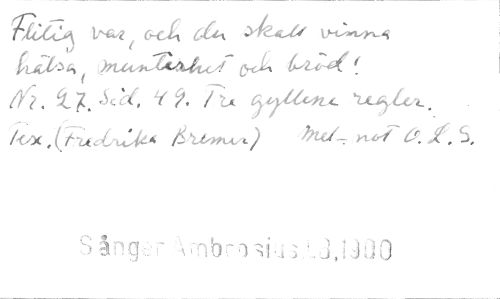 Flitig var, och du skall vinna
hälsa, munterhet och bröd!
Nr. 27. Sid. 49. Tre gyllene regler.
Tex. (Fredrika Bremer) Mel-not O. L. S.
Sånger Ambrosius 1900